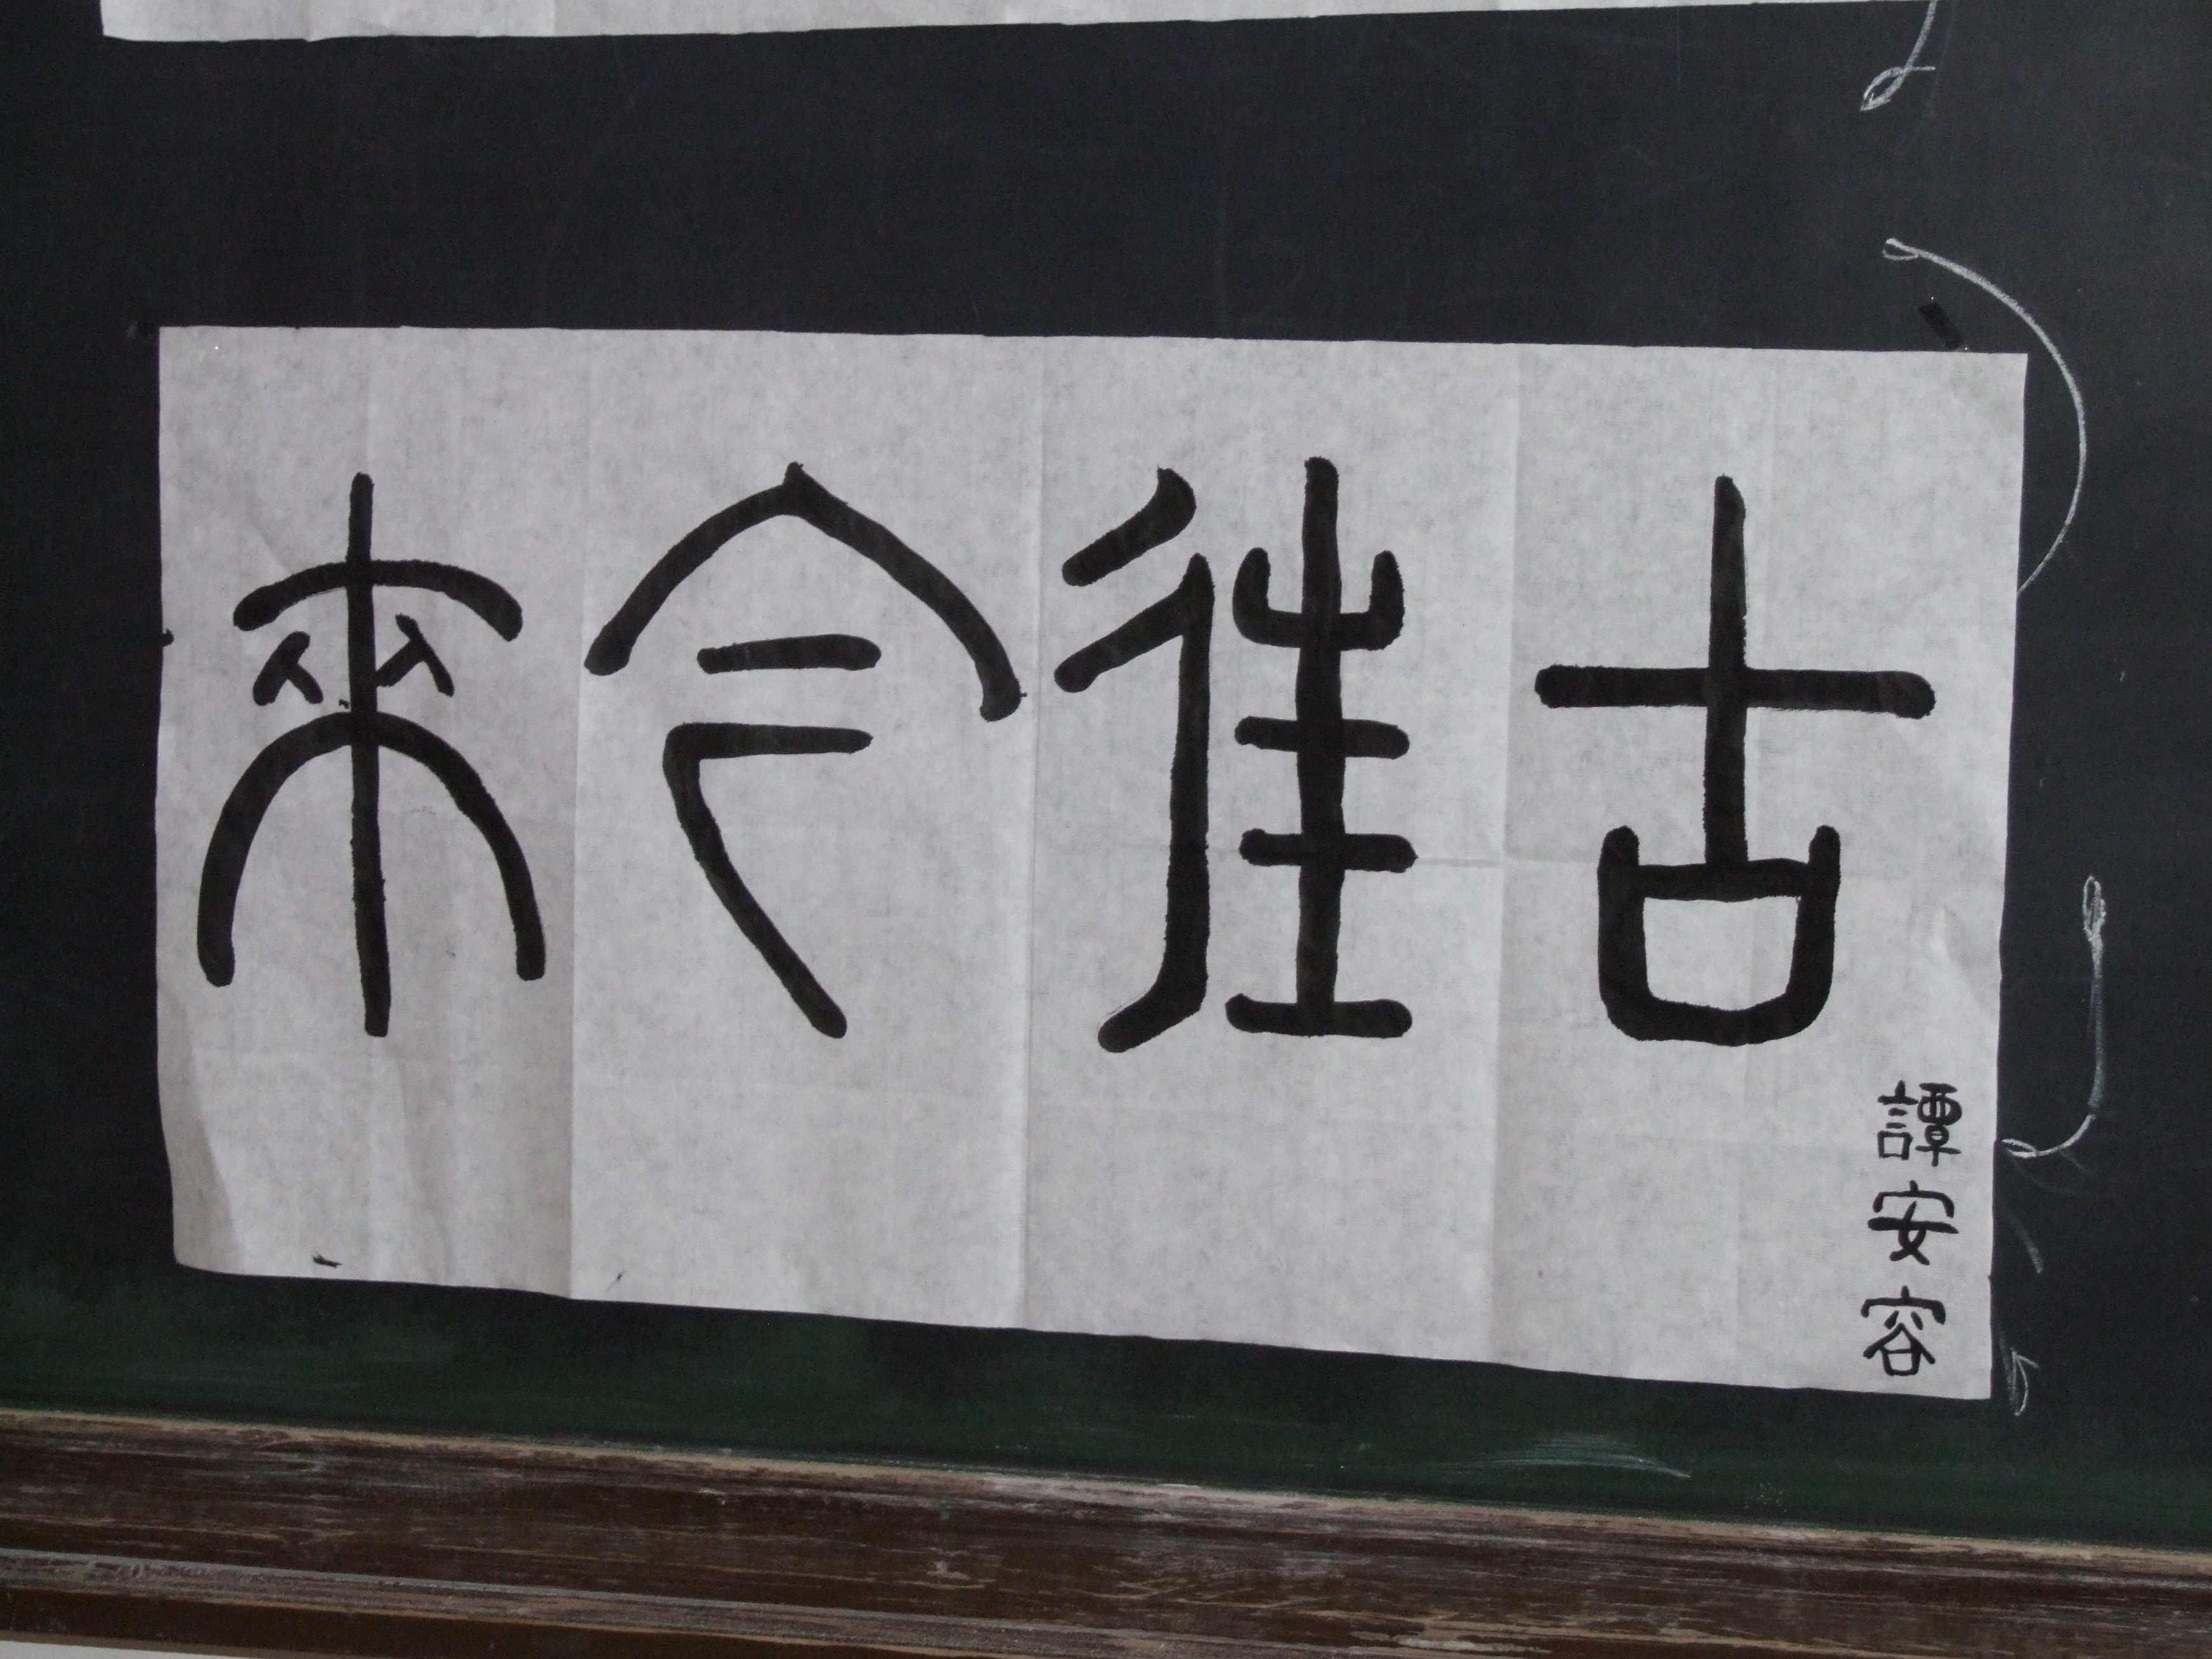 古往今來
譚安容